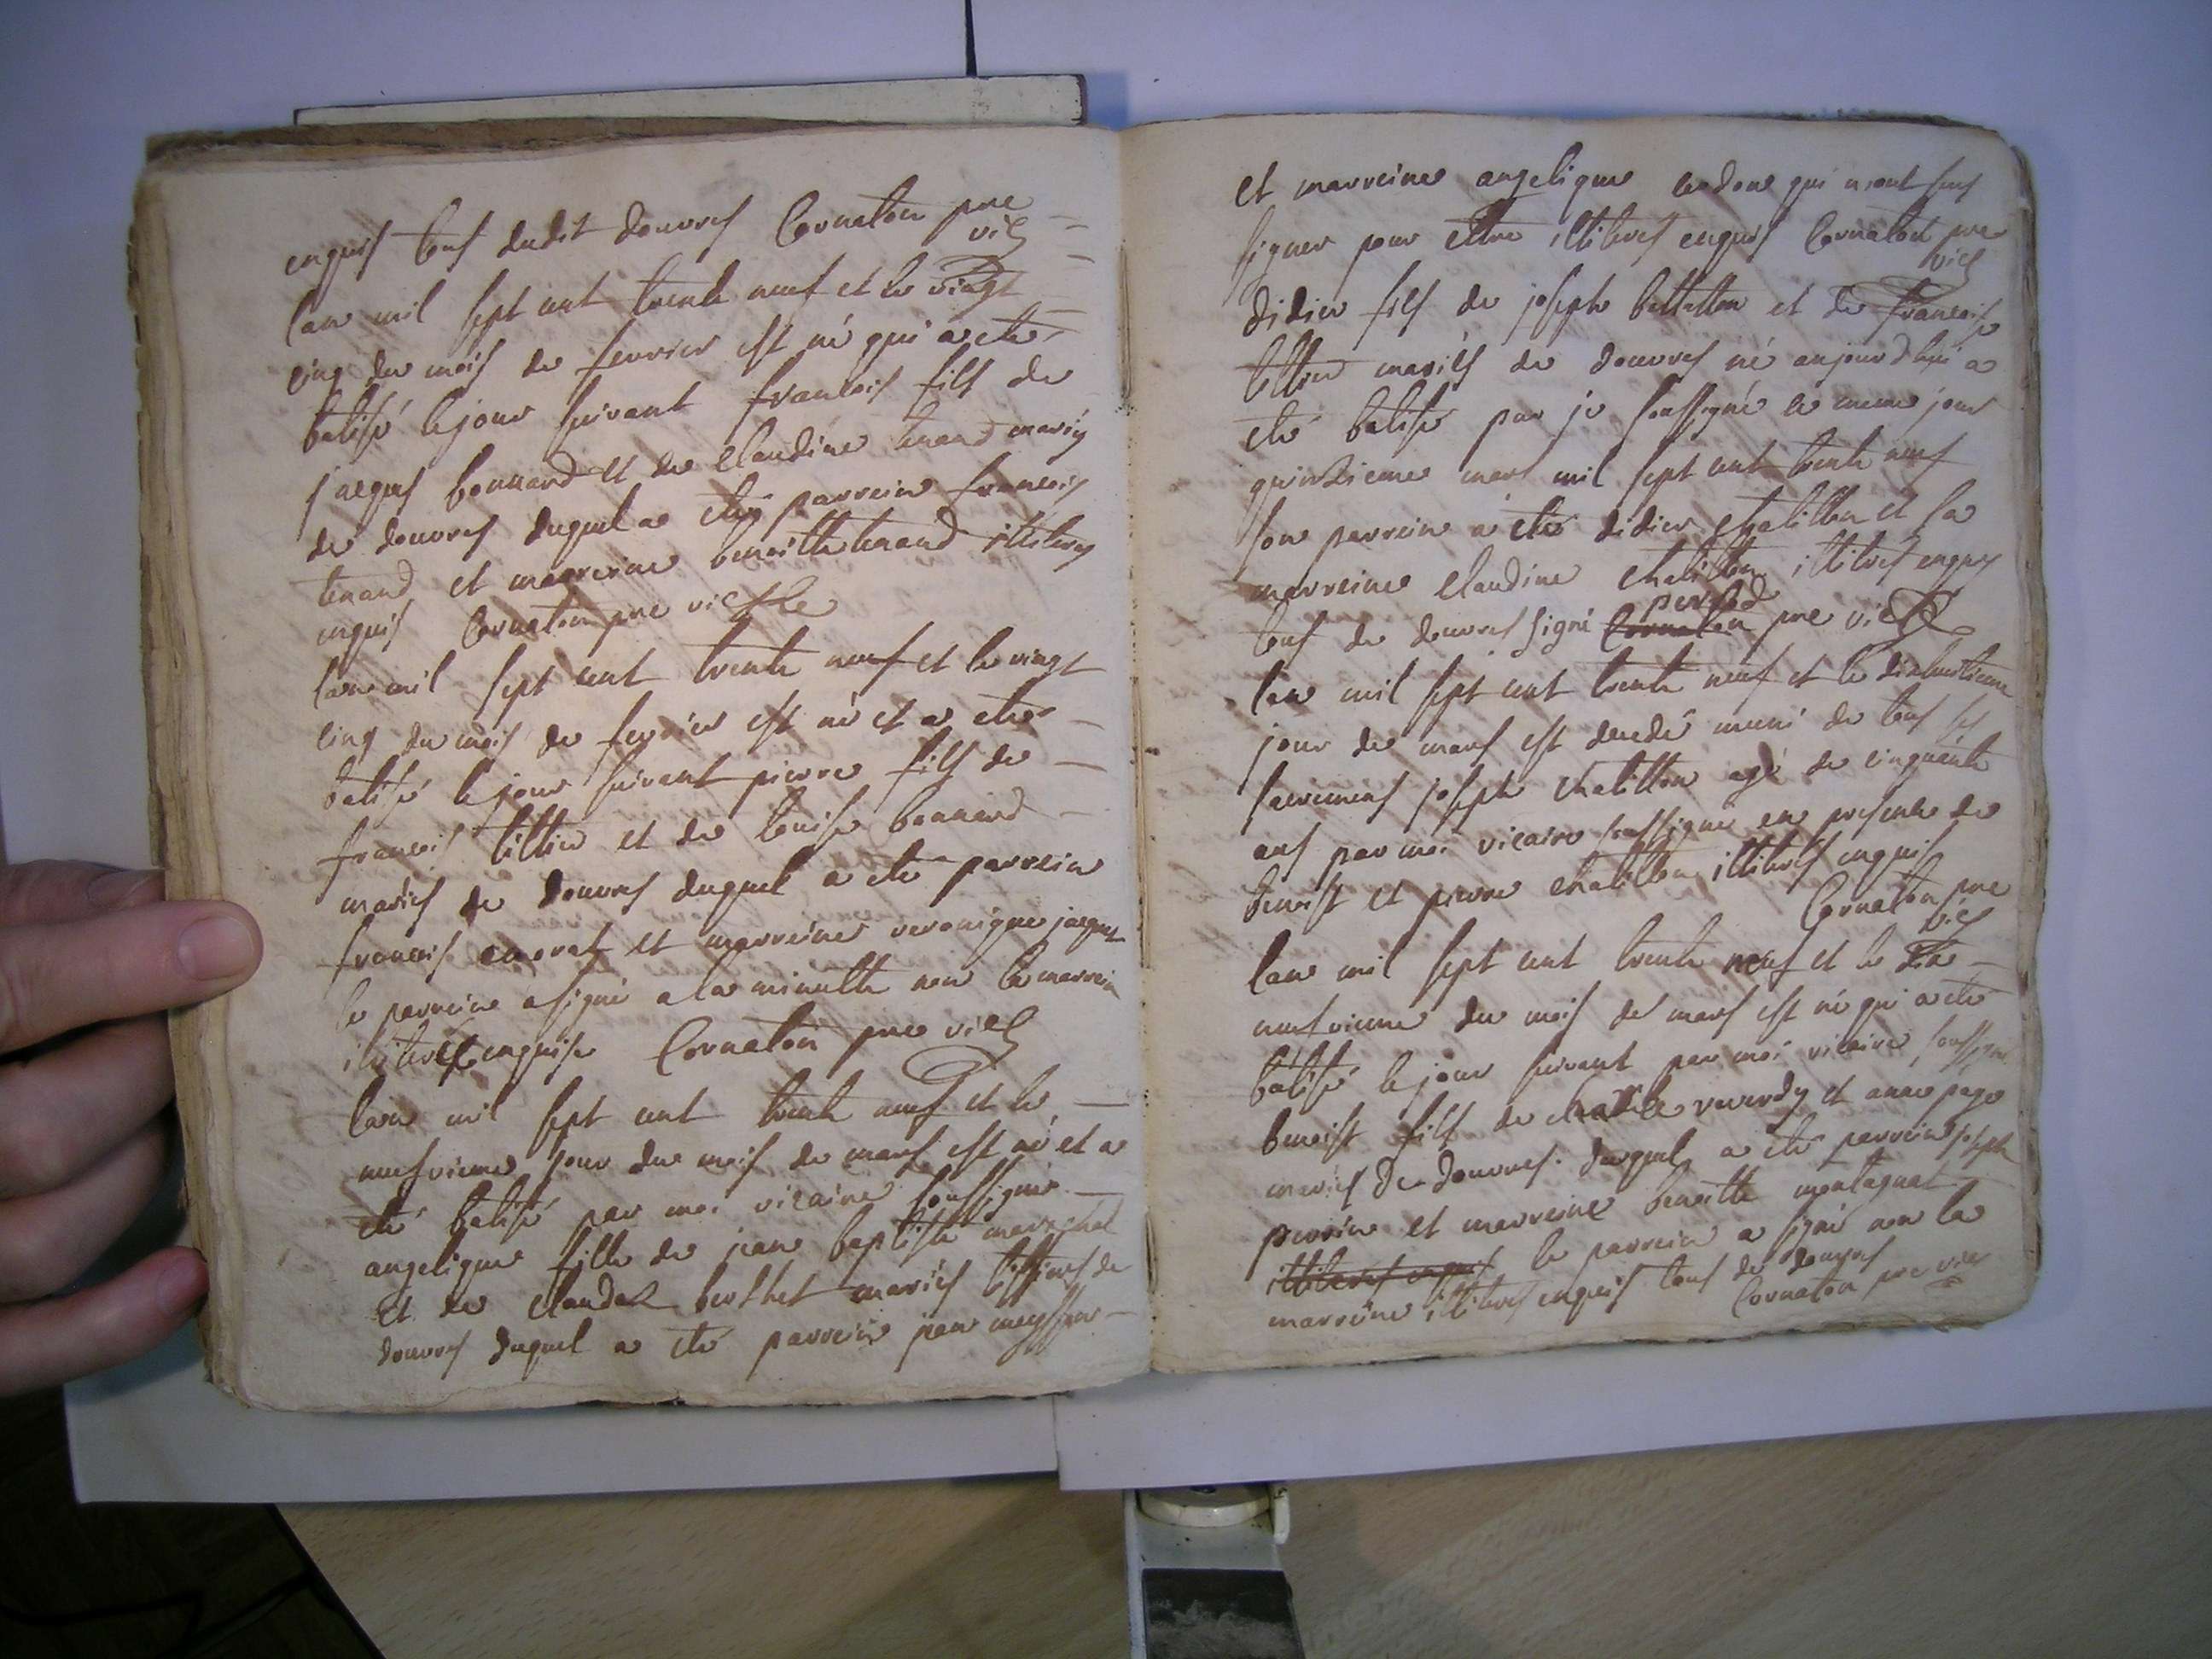 enquis tous dudit douvres Cornaton pre
vic
lan mil sept cent trente neuf et le vingt
cinq du mois de fevrier est né qui a eté
batisé le jour suivant francois fils de
jacques bonnard et de claudine tenand mariés
de douvres duquel a eté parrein francois
tenand et marreine benoitte tenand illiterés
enquis Cornaton pre vic
lan mil sept cent trente neuf et le vingt
cinq du mois de fevrier est né et a eté
batisé le jour suivant pierre fils de
francois tillier et de louise bonnard
mariés de douvres duquel a eté parrein
francois et marreine veronique
le parrein a signé a la minutte non la marreine
illiterée enquise Cornaton pre vic
lan mil sept cent trente neuf et le
neufvieme jour du mois de mars est né et a
eté batisé par moi vicaire soussigné
angelique fille de jean baptiste marechal
et de clauda berthet mariés de
douvres duquel a eté parrein jean
et marreine angelique qui n'ont sus
signer pour etre illiterés enquis Cornaton pre
vic
didier fils de joseph et de francoise
tillier mariés de douvres né aujourdhui a
eté batisé par je soussigné ce meme jour
quinzieme mars mil sept cent trente neuf
son parrein a eté didier chatillon et sa
marreine claudine chatillon illiterés enquis
tous de douvres signé Cornaton pre vic
lan mil sept cent trente neuf et le dixhuitieme
jour de mars est decedé muni de tous ses
sacremens joseph chatillon agé de cinquante
ans par moi vicaire soussigné en presence de
benoist et pierre chatillon illiterés enquis
Cornaton pre
vic
lan mil sept cent trente neuf et le dix
neufvieme du mois de mars est né qui a eté
batisé le jour suivant par moi vicaire soussigné
benoist fils de charle reverdy et anne page
mariés de douvres duquel a eté parrein joseph
perrin et marreine benoitte montagnat
illiterés enquis le parrein a signé non la
marreine illiterés enquis tous de douvres
Cornaton pre vic